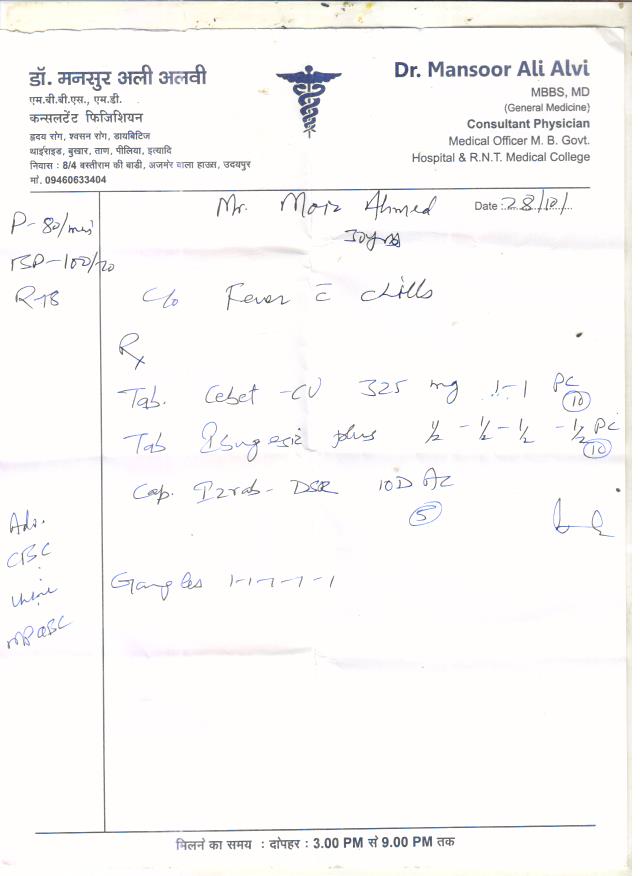 डॉ. मनसुर अली अलवी
एम.बी.बी.एस., एम.डी.
कन्सलटेंट फिजिशियन
ह्रदय रोग, श्वसन रोग, डायबिटिज
थाईराइड, बुखार, ताण, पीलिया, इत्यादि
निवास : 8/4 बस्तीराम की बाडी, अजमेर वाला हाउस, उदयपुर
मां. 09460633404
Dr. Mansoor Ali Alvi
MBBS, MD
(General Medicine)
Consultant Physician
Medical Officer M. B. Govt.
Hospital & R.N.T. Medical College
Mr. Moiz Ahmed
Date : 28/10/
30yrs
P-80/min
BP-100/70
R-18
C/o Fever c̄ chills
Rx
Tab. Cebet-CV 325 mg 1-1 PC
10
Tab Ibugesic plus ½ - ½ - ½ - ½ PC
10
Cap. Rzab- DSR 10D AC
5
Adv.
CBC
Urine
Gargles 1-1-1-1-1
मिलने का समय : दोपहर : 3.00 PM से 9.00 PM तक